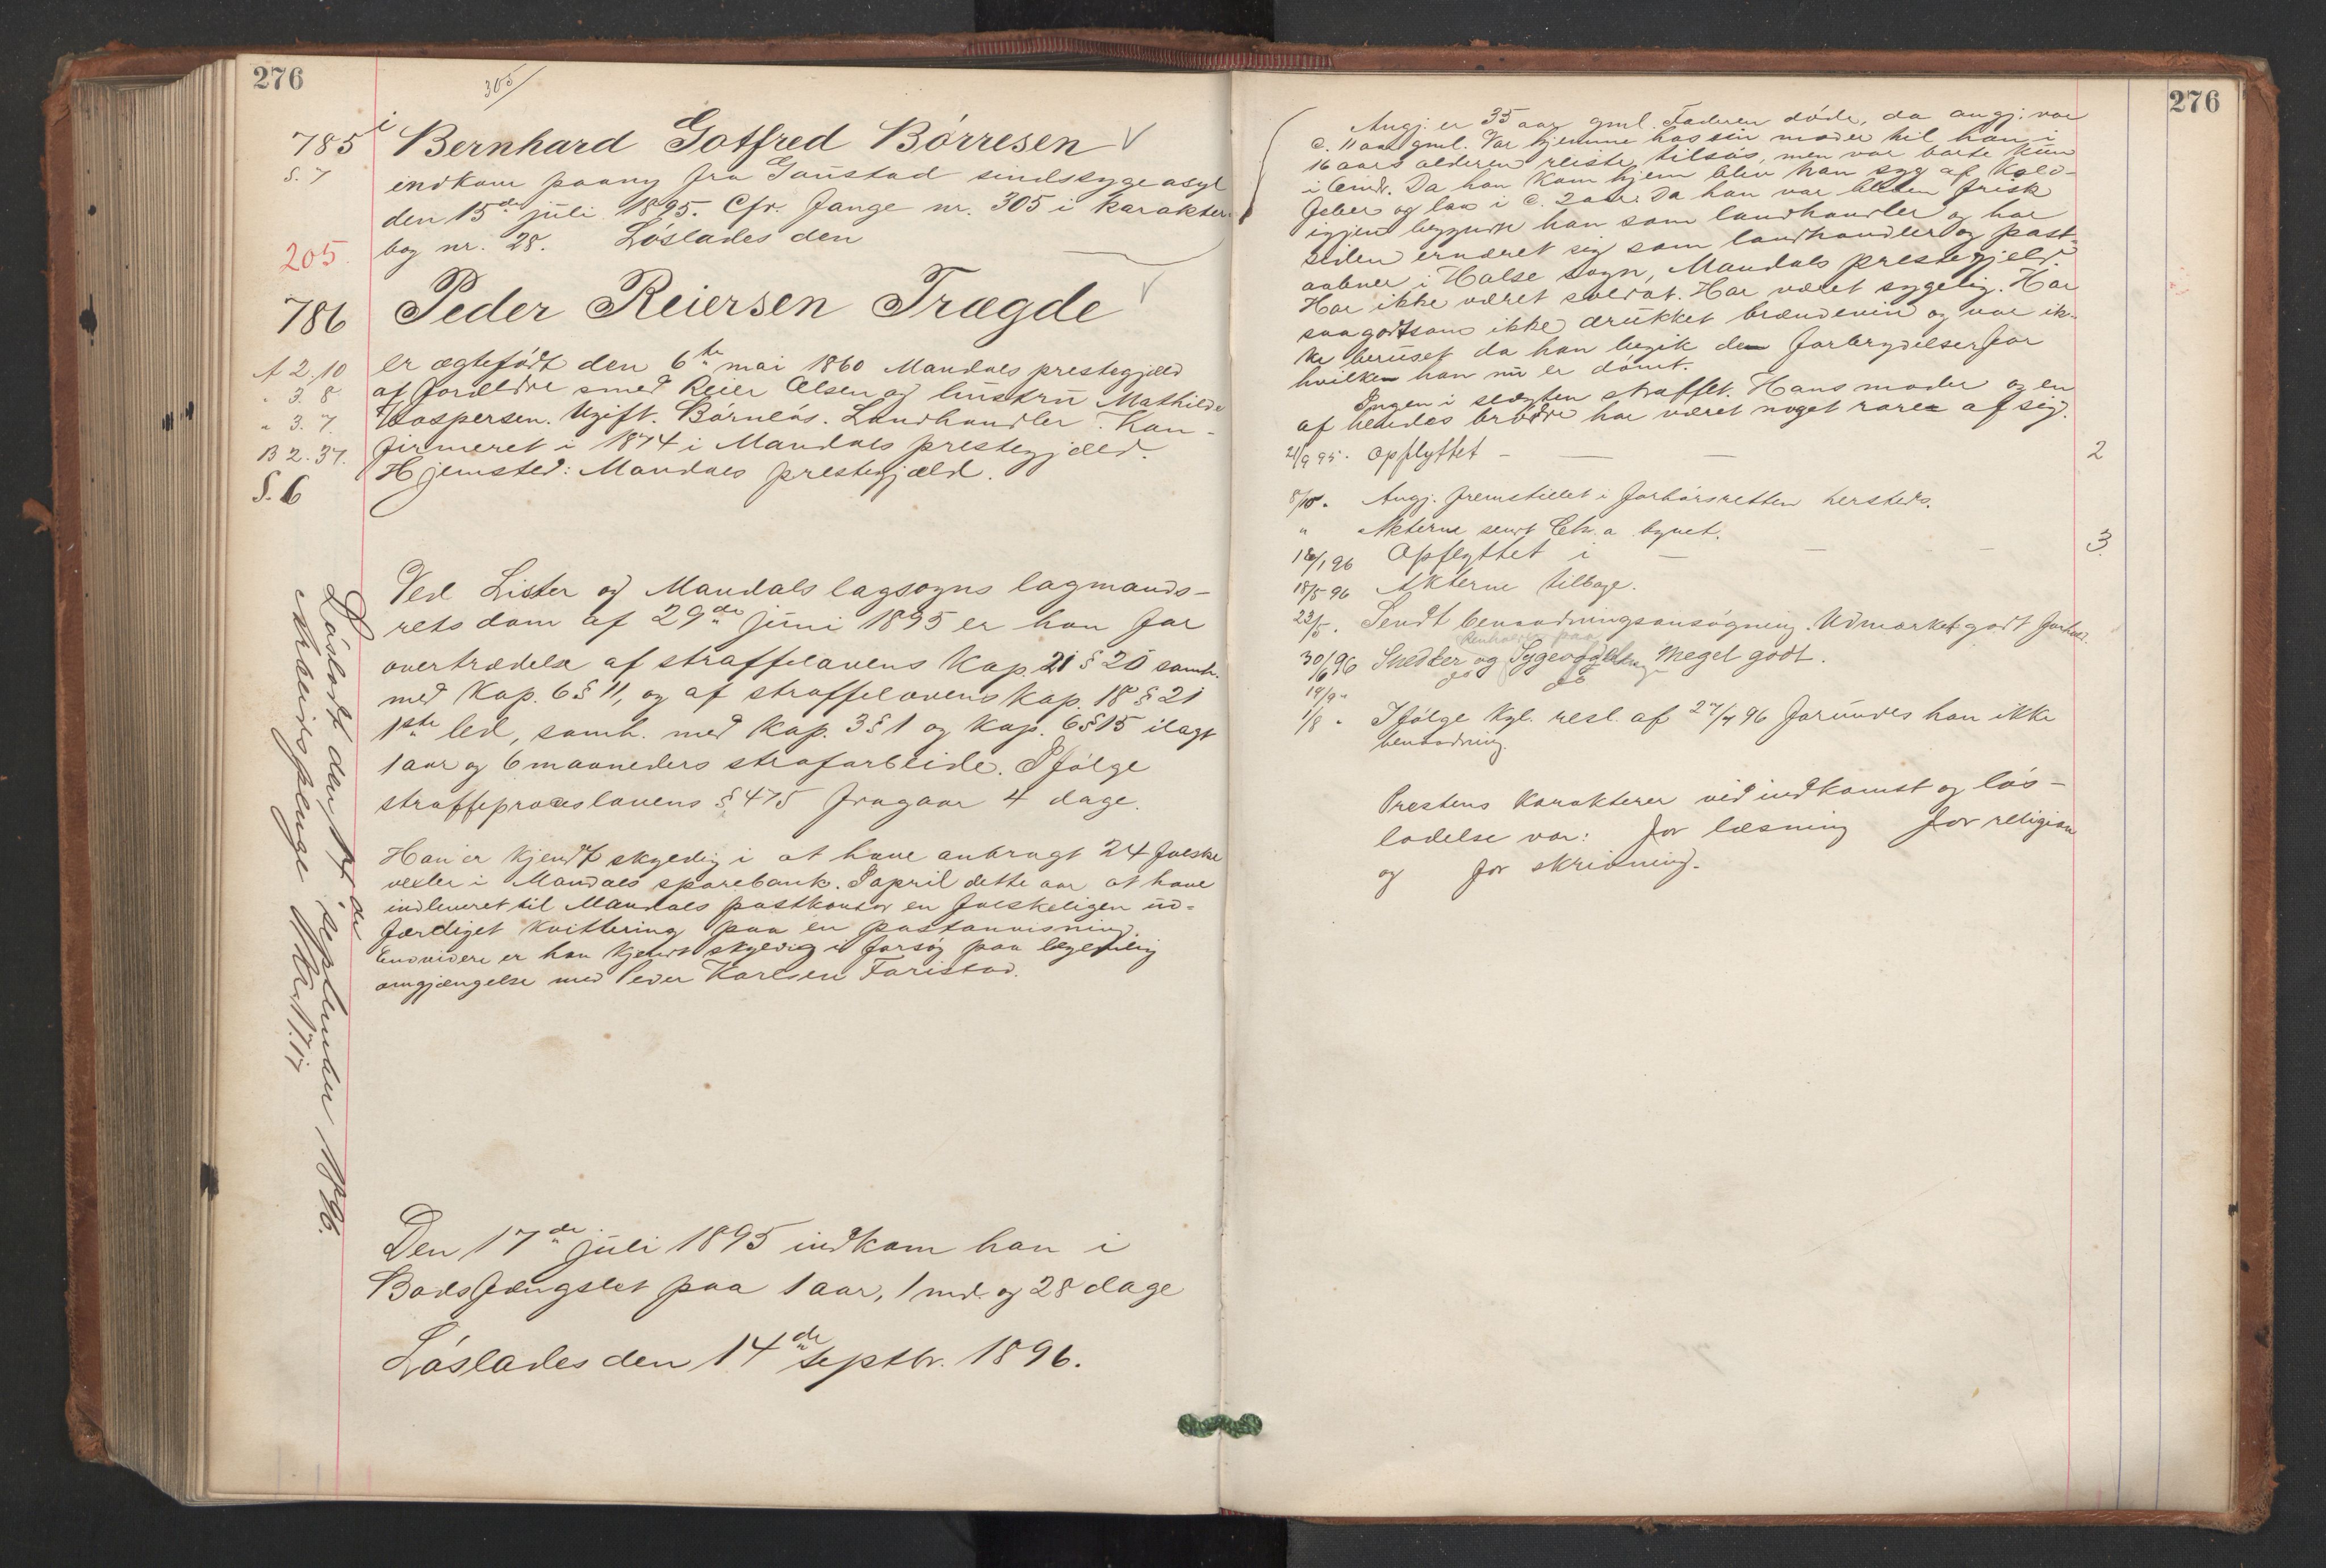 276
305/
785
Bernhard Gotfred Børresen
S. 7
indkom paany fra Gaustad sindssygeasyl
den 15de juli 1895. Cfr. Fange nr. 305 i karakter-
205.
bog nr. 28. Løslades den
786
Peder Reiersen Trægde
A 2.10
er ægtefødt den 6te mai 1860 Mandals prestegjæld
" 3. 8
af forældre smed Reier Olsen og hustru Mathilde
" 3. 7.
Kaspersen. Ugift. Børnløs. Landhandler. Kon-
B 2. 37.
firmeret i 1874 i Mandals prestegjæld.
S. 6
Hjemsted: Mandals prestegjæld.
Ved Lister og Mandals lagsogns lagmands-
rets dom af 29de juni 1895 er han for
overtrædelse af straffelovens Kap. 21 § 20 samh.
med Kap. 6 § 11, og af straffelovens Kap. 18 § 21
1ste led, samh. med Kap. 3 § 1 og Kap. 6 § 15 ilagt
1 aar og 6 maaneders strafarbeide. Ifølge
straffeproceslovens § 475 fragaar 4 dage.
Han er kjendt skyldig i at have anbragt 24 falske
vexler i Mandals sparebank. I april dette aar at have
indleveret til Mandals postkontor en falskeligen ud-
færdiget kvittering paa en postanvisning.
Endvidere er han kjendt skyldig i forsøg paa legemlig
omgjængelse med Peder Karlsen Faristad.
Den 17de juli 1895 indkom han i
Bodsfængslet paa 1 aar, 1 md. og 28 dage
Løslades den 14de septbr. 1896.
Løsladt den 14de september 1896.
Arbeidspenge
276
Angj. er 35 aar gml. Faderen døde, da angj. var
c. 11 aar gml. Var hjemme hos sin moder til han i
16 aars alderen reiste tilsøs, men var borte kun
i 6 mdr. Da han kom hjem blev han syg af Kold-
feber og laa i c. 2 aar. Da han var bleven frisk
igjen begyndte han som landhandler og har
siden ernæret sig som landhandler og post-
aabner i Halse sogn, Mandals prestegjeld.
Har ikke været soldat. Har været sygelig. Har
saagodtsom ikke drukket brændevin og var ik-
ke beruset da han begik de forbrydelser for
hvilke han nu er dømt.
Ingen i slægten straffet. Hans moder og en
af hendes brødre har været noget rare af sig.
21/9 95. Opflyttet - — — 2
8/10. Angj. fremstillet i forhørsretten hersteds.
" Akterne sendt Chr.a bynet.
18/1 96 Opflyttet i — — — 3.
18/5 96 Akterne tilbage.
23/5. Sendt benaadningsansøgning. Udmærket godt forhold.
Renholder paa
30/6 96 Snedker og Sygeafdeling Meget godt.
14/9 " do do
1/8 " Ifølge Kgl. resl. af 27/7 96 forundes han ikke
benaadning.
Prestens karakterer ved indkomst og løs-
ladelse var: for læsning for religion
og for skrivning.